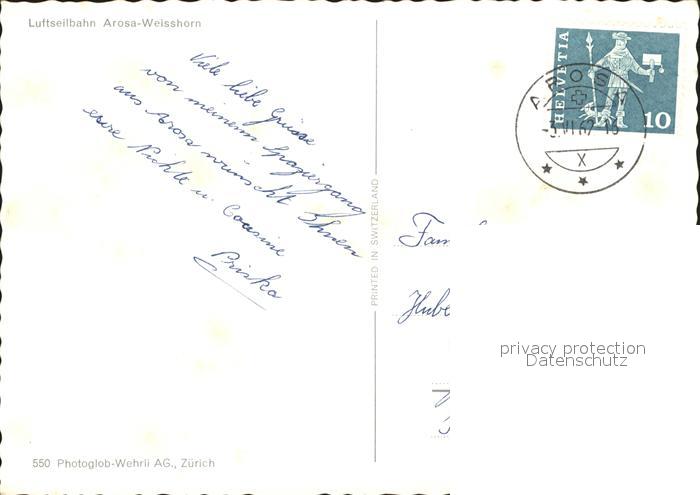 Luftseilbahn Arosa-Weisshorn
Viele liebe Grüsse
von meinem Spaziergang
aus Arosa wünscht Ihnen
eure Nichte u. Cousine
Priska
PRINTED IN SWITZERLAND
HELVETIA
10
AROSA
X
Fam
Hube
privacy protection
Datenschutz
550 Photoglob-Wehrli AG., Zürich